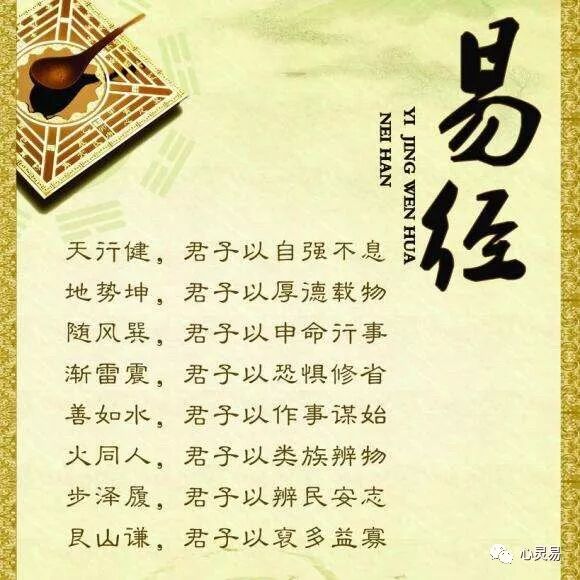 易经
YI JING WEN HUA
NEI HAN
天行健，君子以自强不息
地势坤，君子以厚德载物
随风巽，君子以申命行事
渐雷震，君子以恐惧修省
善如水，君子以作事谋始
火同人，君子以类族辨物
步泽履，君子以辨民安志
艮山谦，君子以裒多益寡
心灵易